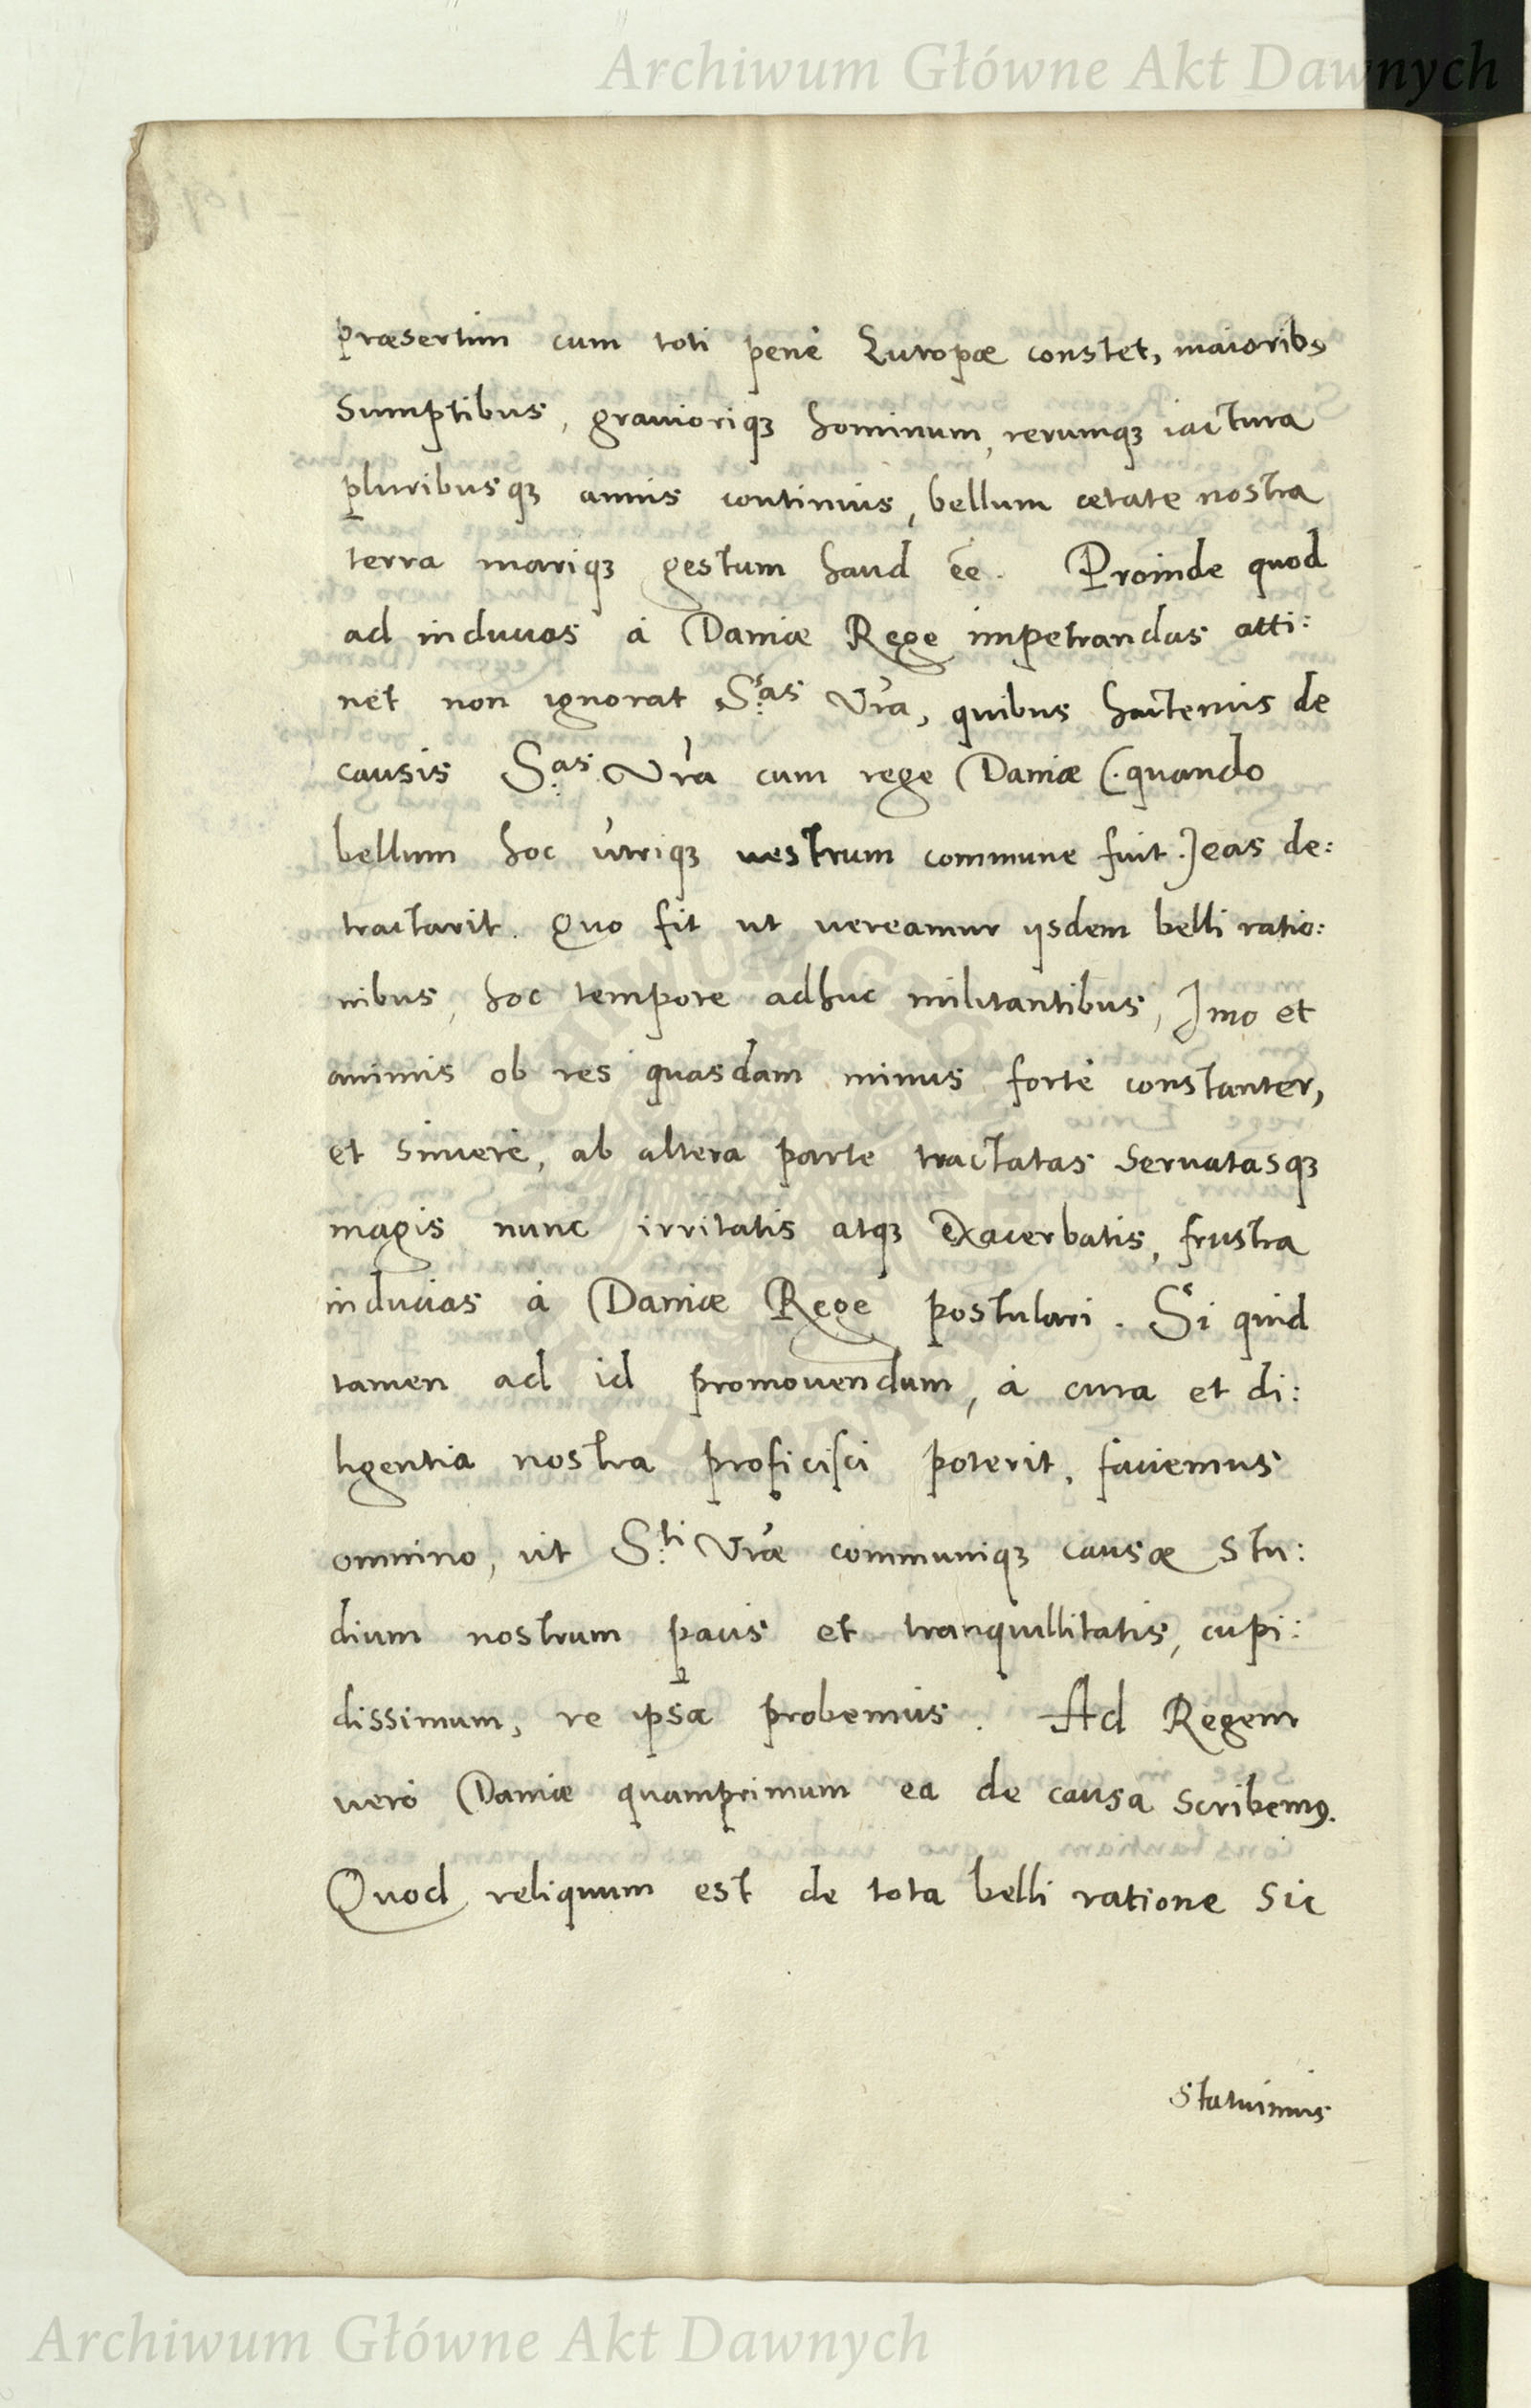 Archiwum Główne Akt Dawnych
præsertim cum toti penè Europæ constet, maioribꝰ
sumptibus, grauioriqꝫ hominum, rerumqꝫ iactura
pluribusqꝫ annis continuis, bellum ætate nostra
terra mariqꝫ gestum haud ēē. Proinde quod
ad inducias à Daniæ Rege impetrandas atti:
net non ignorat S.as Vr̃a, quibus hactenus de
causis S.as Vr̃a cum rege Daniæ (.quando
bellum hoc utriqꝫ uestrum commune fuit.) eas de:
tractarit. Quo fit ut uereamur ijsdem belli ratio:
nibus, hoc tempore adhuc militantibus, Imo et
animis ob res quasdam minus fortè constanter,
et sincerè, ab altera parte tractatas seruatasqꝫ
magis nunc irritatis atqꝫ exacerbatis, frustra
inducias à Daniæ Rege postulari. Si quid
tamen ad id promouendum, à cura et di:
ligentia nostra proficisci poterit, faciemus
omnino, ut S.ti Vr̃æ communiqꝫ causæ stu:
dium nostrum pacis et tranquillitatis, cupi:
dissimum, re ipsa probemus. Ad Regem
uerò Daniæ quamprimum ea de causa scribemꝰ.
Quod reliquum est de tota belli ratione sic
statuimus
Archiwum Główne Akt Dawnych